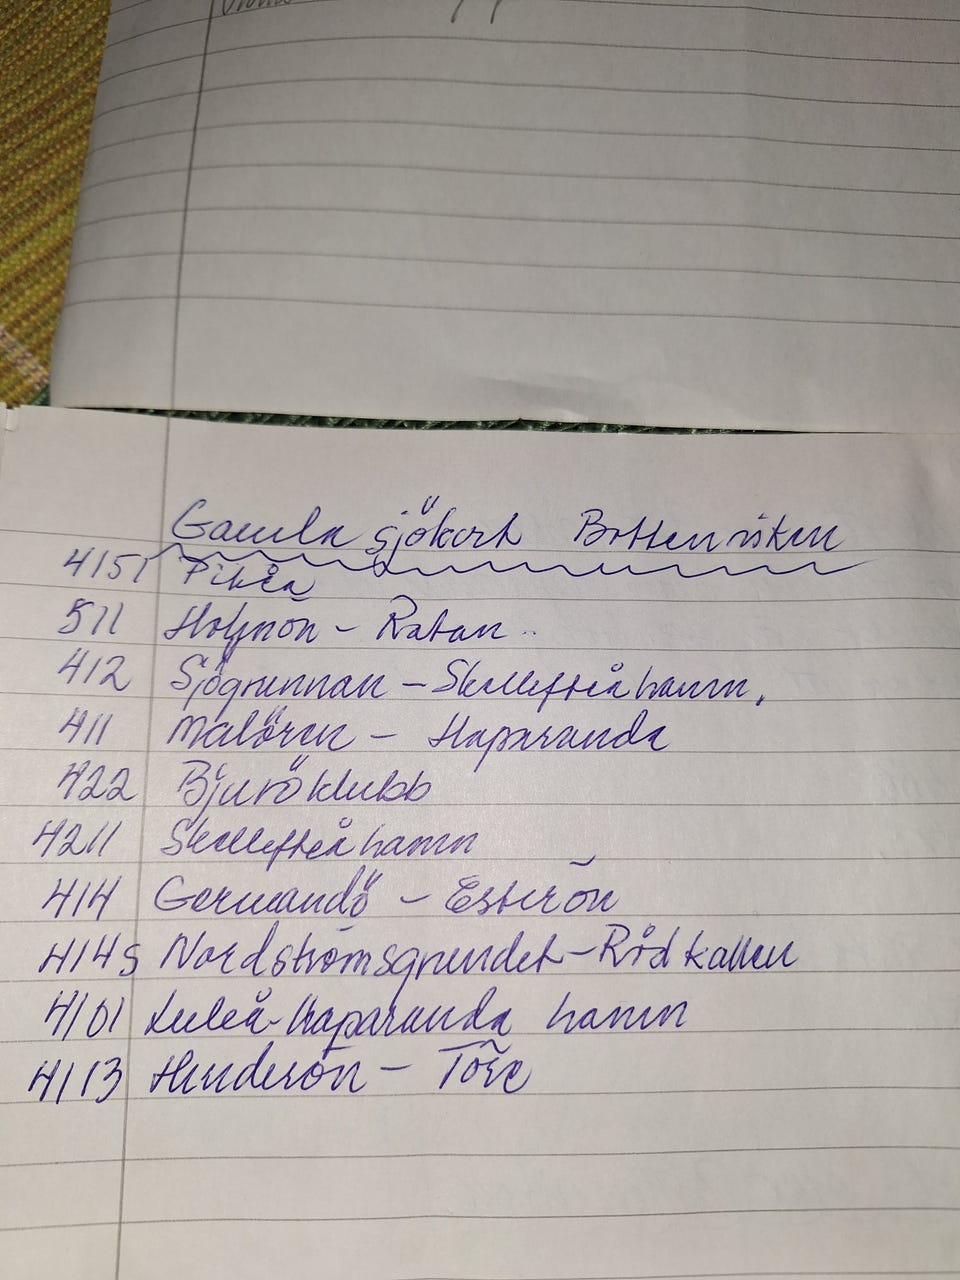 Gamla sjökort Bottenviken
4151 Piteå
511 Holmön - Ratan
412 Sjögrunnan - Skellefteåhamn.
411 Malören - Haparanda
422 Bjuröklubb
4211 Skellefteåhamn
414 Germandö - Esterön
414S Nordströmsgrundet - Rödkallen
4101 Luleå - Haparanda hamn
4113 Hindersön - Töre